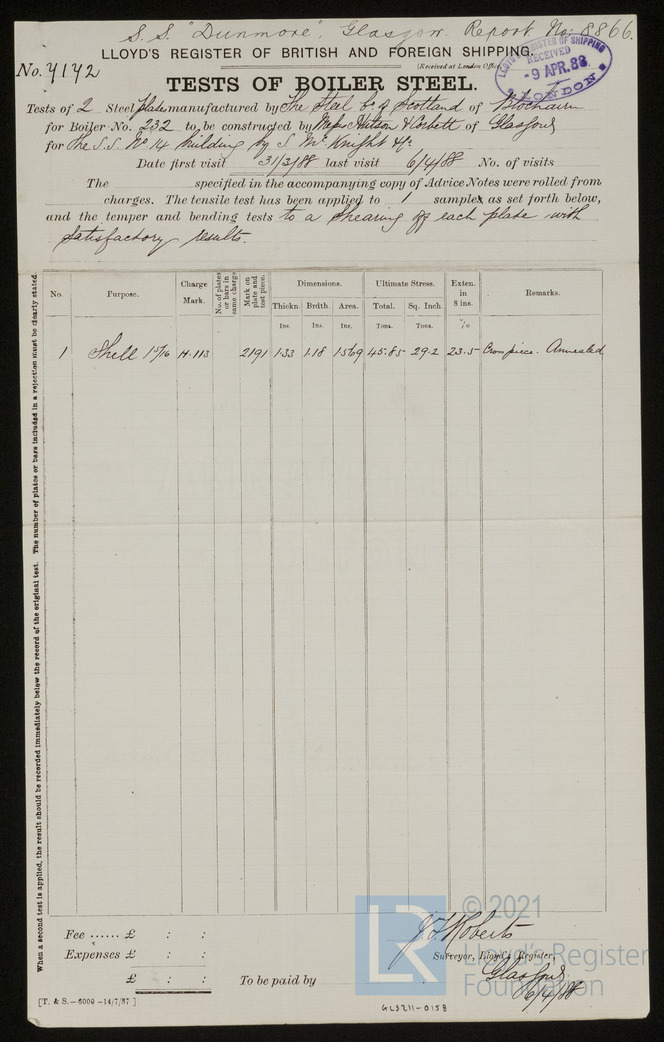 S.S. "Dunmore". Glasgow. Report No: 8866.
LLOYD'S REGISTER OF BRITISH AND FOREIGN SHIPPING.
No. 4142
(Received at London Office,
LLOYD'S REGISTER OF SHIPPING
RECEIVED
-9 APR.88
LONDON
TESTS OF BOILER STEEL.
Tests of 2 Steel plates manufactured by The Steel Co. of Scotland of Blochairn
for Boiler No. 232 to be constructed by Messrs Hutson & Corbett of Glasgow
for The S.S. No 14 building by S. McKnight & Co
Date first visit 31/3/88 last visit 6/4/88 No. of visits
The specified in the accompanying copy of Advice Notes were rolled from
charges. The tensile test has been applied to 1 samples as set forth below,
and the temper and bending tests to a shearing of each plate with
satisfactory results.
When a second test is applied, the result should be recorded immediately below the record of the original test. The number of plates or bars included in a rejection must be clearly stated.
No. Purpose. Charge Mark. No. of plates or bars in same charge Mark on plate and test piece. Dimensions. Ultimate Stress. Exten. in 8 ins. Remarks.
Thickn. Brdth. Area. Total. Sq. Inch.
Ins. Ins. Ins. Tons. Tons. %
1 Shell 15/16 H.113 2191 1.33 1.18 1.569 45.85 29.2 23.5 Crosspiece. Annealed
Fee ...... £ : :
Expenses £ : :
£ : :
To be paid by
J T Roberts
Surveyor, Lloyd's Register,
Glasgow
6/4/88
[T. & S.—6000—14/7/87]
GLS211-0158
LR
© 2021
Lloyd's Register
Foundation